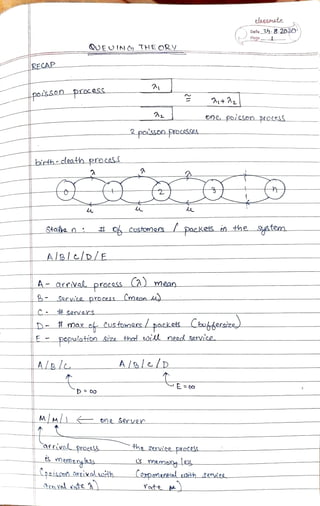 classmate
Date 31.8.2020
Page 1
QUEUING THEORY
RECAP
poisson process
λ1
λ2
≅
λ1+λ2
one poisson process
2 poisson processes
birth-death process
λ λ λ
0 1 2 3 n
μ μ μ
State n : # of customers / packets in the system
A/B/C/D/E
A - arrival process (λ) mean
B - service process (mean μ)
C - # servers
D - # max of customers / packets (buffersize)
E - population size that will need service.
A/B/C A/B/C/D
D=∞ E=∞
M/M/1 ← one server
arrival process the service process
is memoryless is memoryless
(poisson arrival with (exponential with service
arrival rate λ) rate μ)